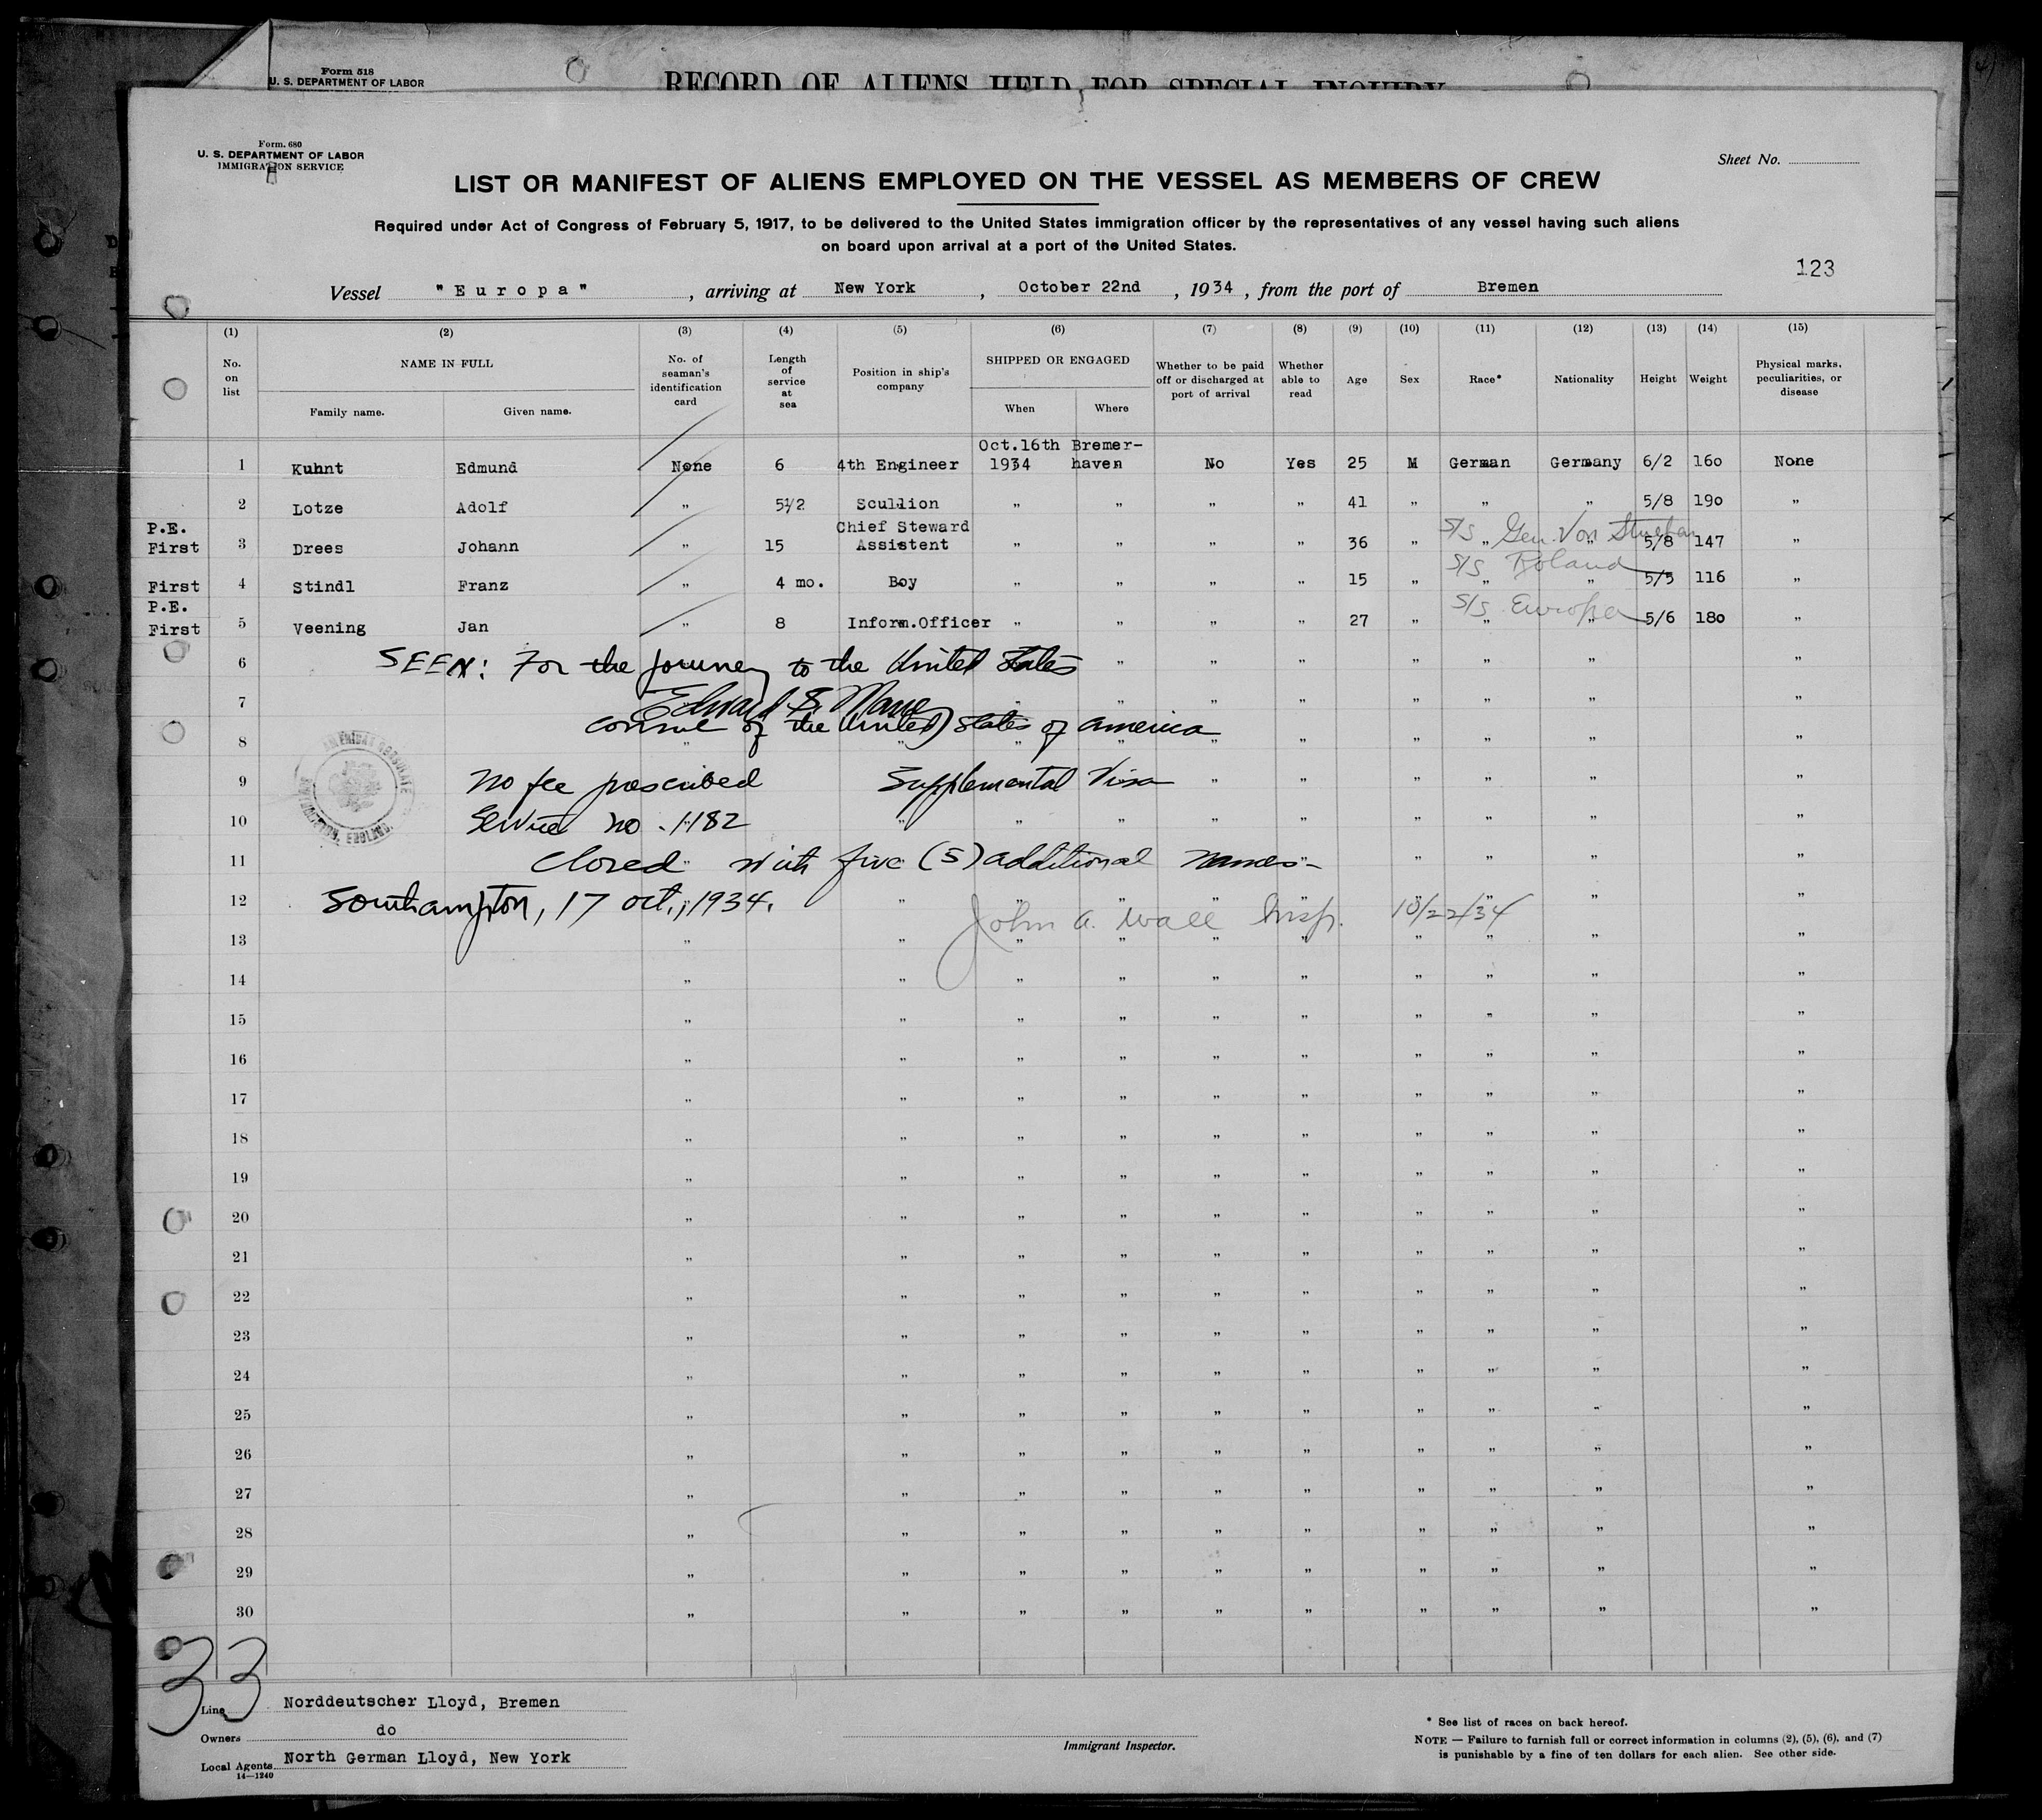 Form 518
U. S. DEPARTMENT OF LABOR
RECORD OF ALIENS HELD FOR SPECIAL INQUIRY
Form. 680
U. S. DEPARTMENT OF LABOR
IMMIGRATION SERVICE
Sheet No.
LIST OR MANIFEST OF ALIENS EMPLOYED ON THE VESSEL AS MEMBERS OF CREW
Required under Act of Congress of February 5, 1917, to be delivered to the United States immigration officer by the representatives of any vessel having such aliens
on board upon arrival at a port of the United States.
123
Vessel "Europa", arriving at New York, October 22nd, 1934, from the port of Bremen
(1) (2) (3) (4) (5) (6) (7) (8) (9) (10) (11) (12) (13) (14) (15)
No. on list NAME IN FULL No. of seaman's identification card Length of service at sea Position in ship's company SHIPPED OR ENGAGED Whether to be paid off or discharged at port of arrival Whether able to read Age Sex Race* Nationality Height Weight Physical marks, peculiarities, or disease
Family name. Given name. When Where
Oct.16th Bremer-
1 Kuhnt Edmund None 6 4th Engineer 1934 haven No Yes 25 M German Germany 6/2 160 None
2 Lotze Adolf " 5½ Scullion " " " " 41 " " " 5/8 190 "
P.E. Chief Steward S/S Gen. Von Stueban
First 3 Drees Johann " 15 Assistent " " " " 36 " " " 5/8 147 "
S/S Roland
First 4 Stindl Franz " 4 mo. Boy " " " " 15 " " " 5/5 116 "
P.E. S/S Europa
First 5 Veening Jan " 8 Inform.Officer " " " " 27 " " " 5/6 180 "
6 SEEN: For the journey to the United States " " " " " " "
7 Edward S. " " " " " " " "
8 Consul of the United States of America " " " " " "
AMERICAN CONSULATE
SOUTHAMPTON, ENGLAND.
9 No fee prescribed Supplemental Visa " " " " " "
10 Service no. 1182 " " " " " " " " "
11 Closed with five (5) additional names- " " " "
12 Southampton, 17 Oct., 1934. " " " " " " " " "
John A. Wall Insp. 10/22/34
13 " " " " " " " " " "
14 " " " " " " " " " "
15 " " " " " " " " " "
16 " " " " " " " " " "
17 " " " " " " " " " "
18 " " " " " " " " " "
19 " " " " " " " " " "
20 " " " " " " " " " "
21 " " " " " " " " " "
22 " " " " " " " " " "
23 " " " " " " " " " "
24 " " " " " " " " " "
25 " " " " " " " " " "
26 " " " " " " " " " "
27 " " " " " " " " " "
28 " " " " " " " " " "
29 " " " " " " " " " "
30 " " " " " " " " " "
33
Line Norddeutscher Lloyd, Bremen
Owners do
Local Agents North German Lloyd, New York
14—1240
Immigrant Inspector.
* See list of races on back hereof.
NOTE — Failure to furnish full or correct information in columns (2), (5), (6), and (7)
is punishable by a fine of ten dollars for each alien. See other side.